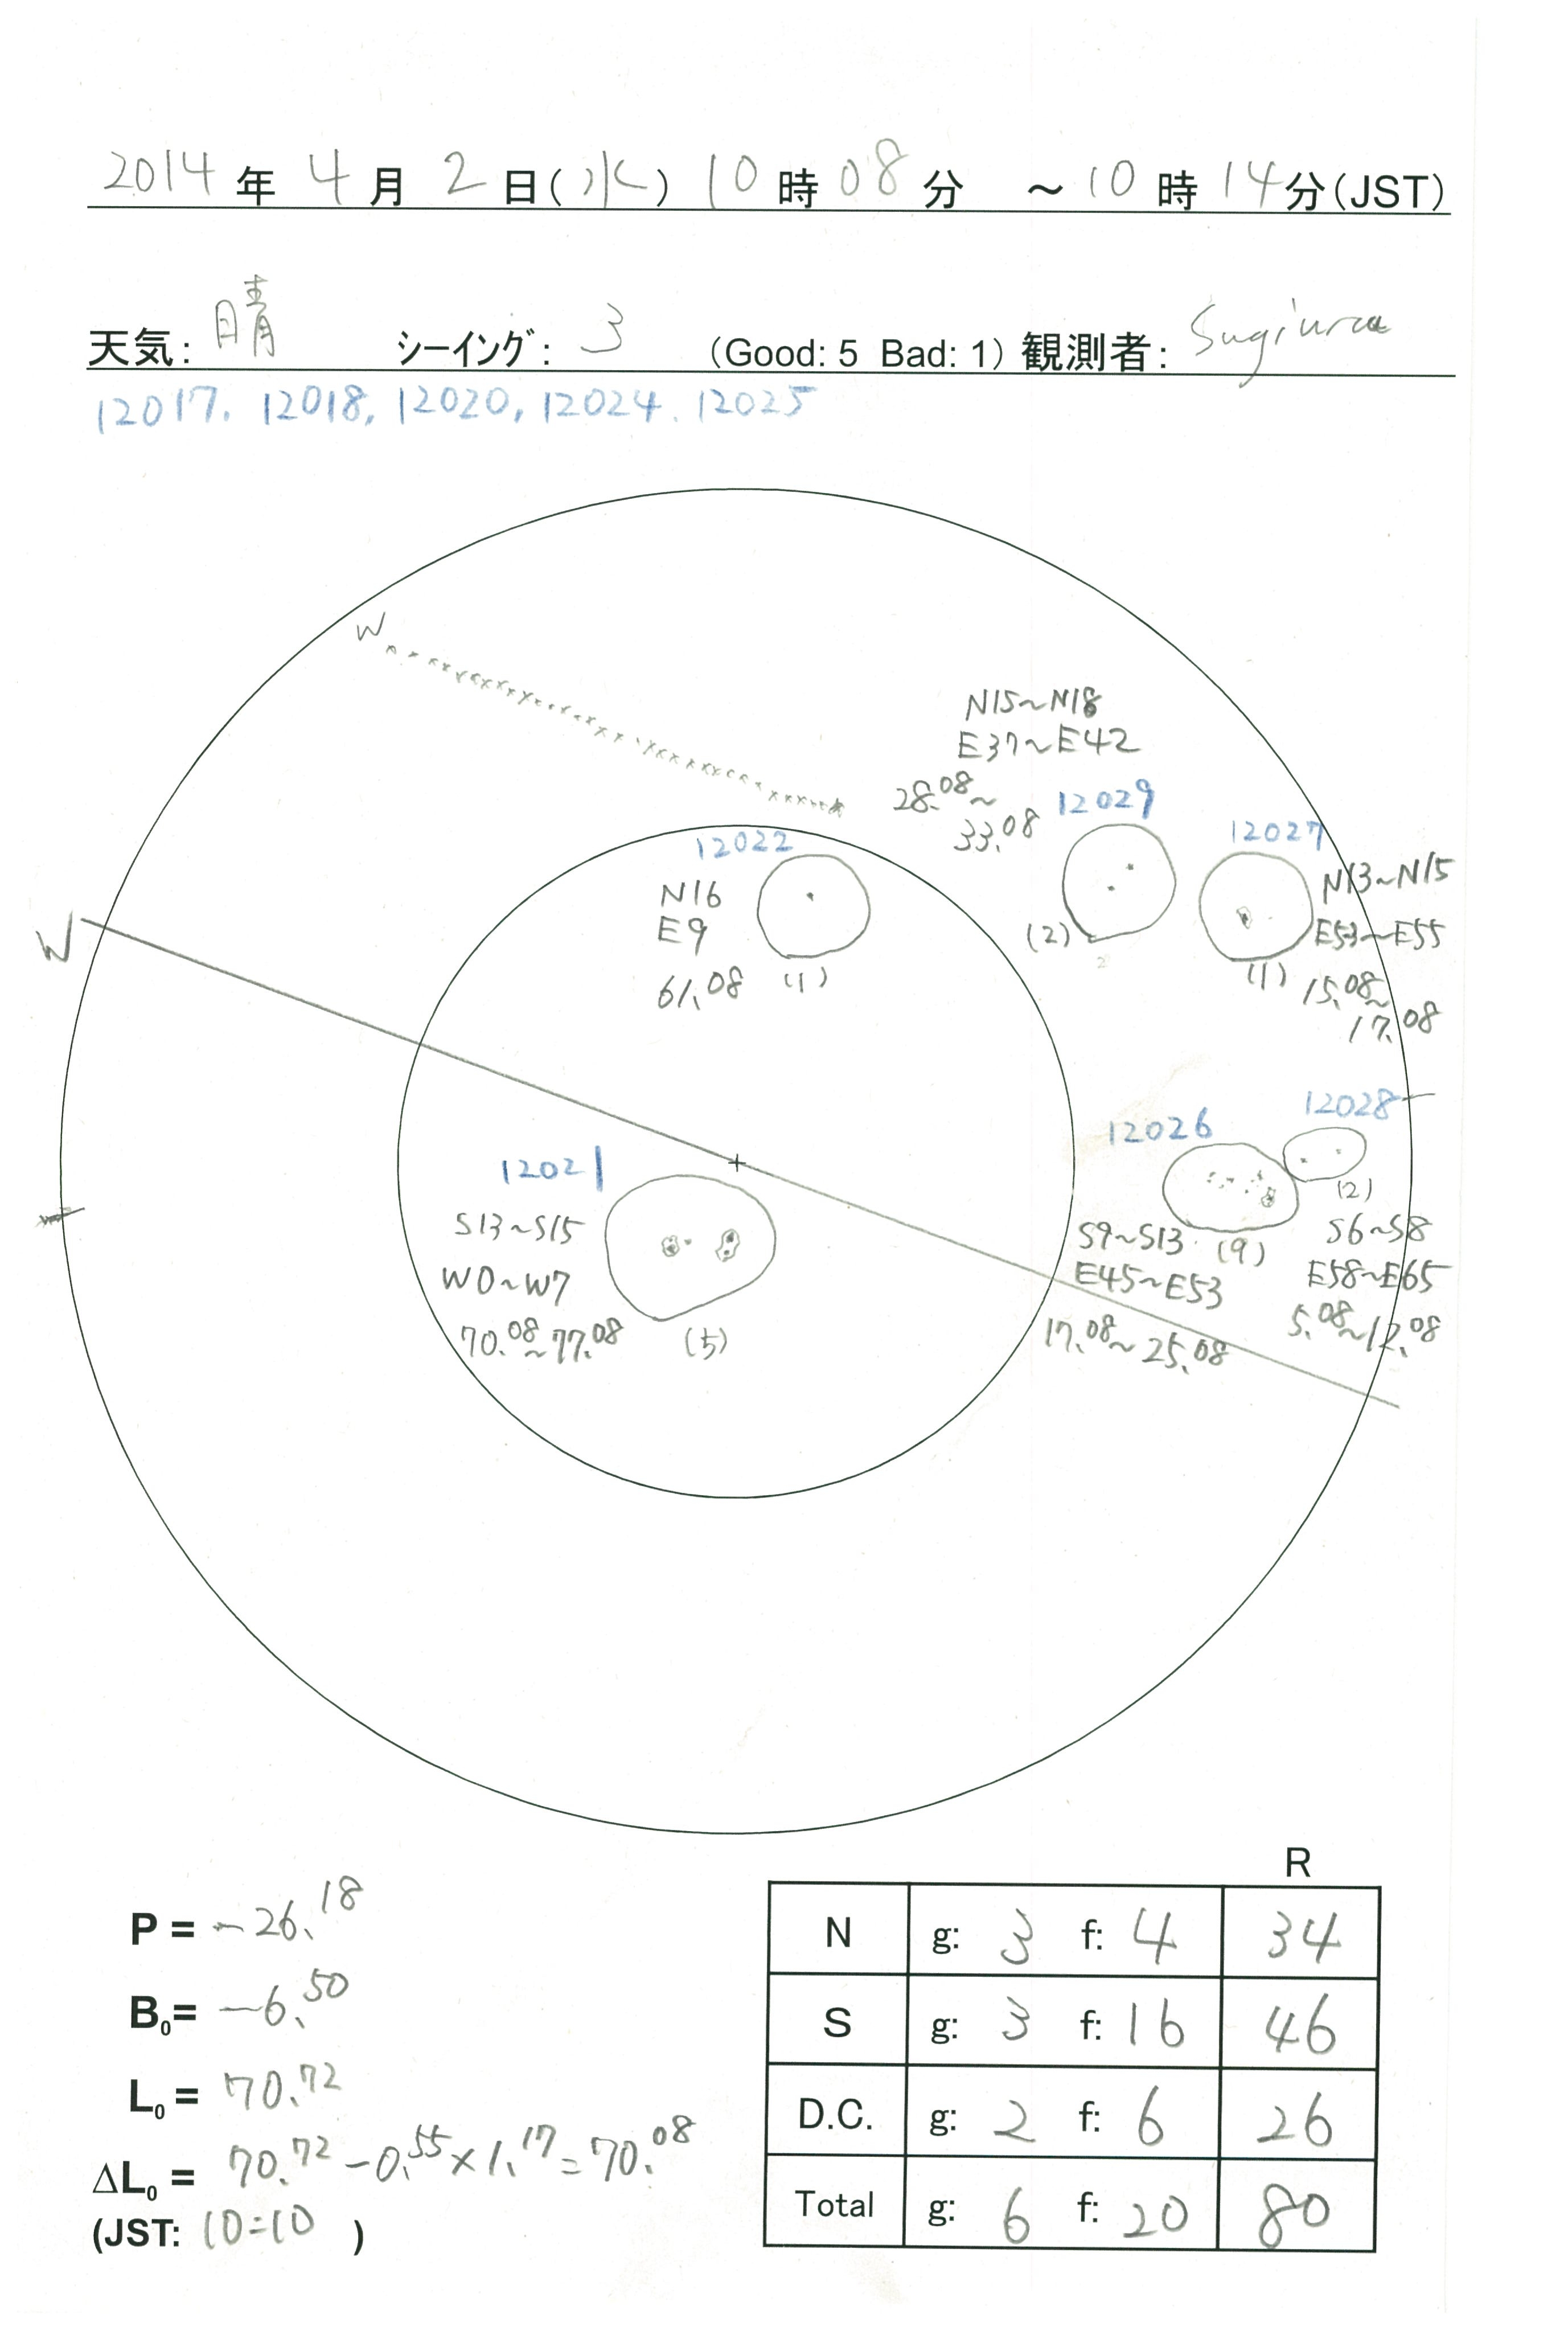 2014年 4月 2日(水) 10時08分 ~10時14分(JST)
天気: 晴 シーイング: 3 (Good: 5 Bad: 1) 観測者: Sugiura
12017. 12018, 12020, 12024. 12025
W
N15~N18
E37~E42
28.08~
33.08
12029
(2)
12027
N13~N15
E53~E55
(1)
15.08~
17.08
12022
N16
E9
61.08 (1)
W
12028
(2)
S6~S8
E58~E65
5.08~12.08
12026
S9~S13 (9)
E45~E53
17.08~25.08
12021
S13~S15
W0~W7
70.08~77.08 (5)
P = -26.18
B0= -6.50
L0 = 70.72
ΔL0 = 70.72-0.55×1.17=70.08
(JST: 10=10 )
R
N g: 3 f: 4 34
S g: 3 f: 16 46
D.C. g: 2 f: 6 26
Total g: 6 f: 20 80